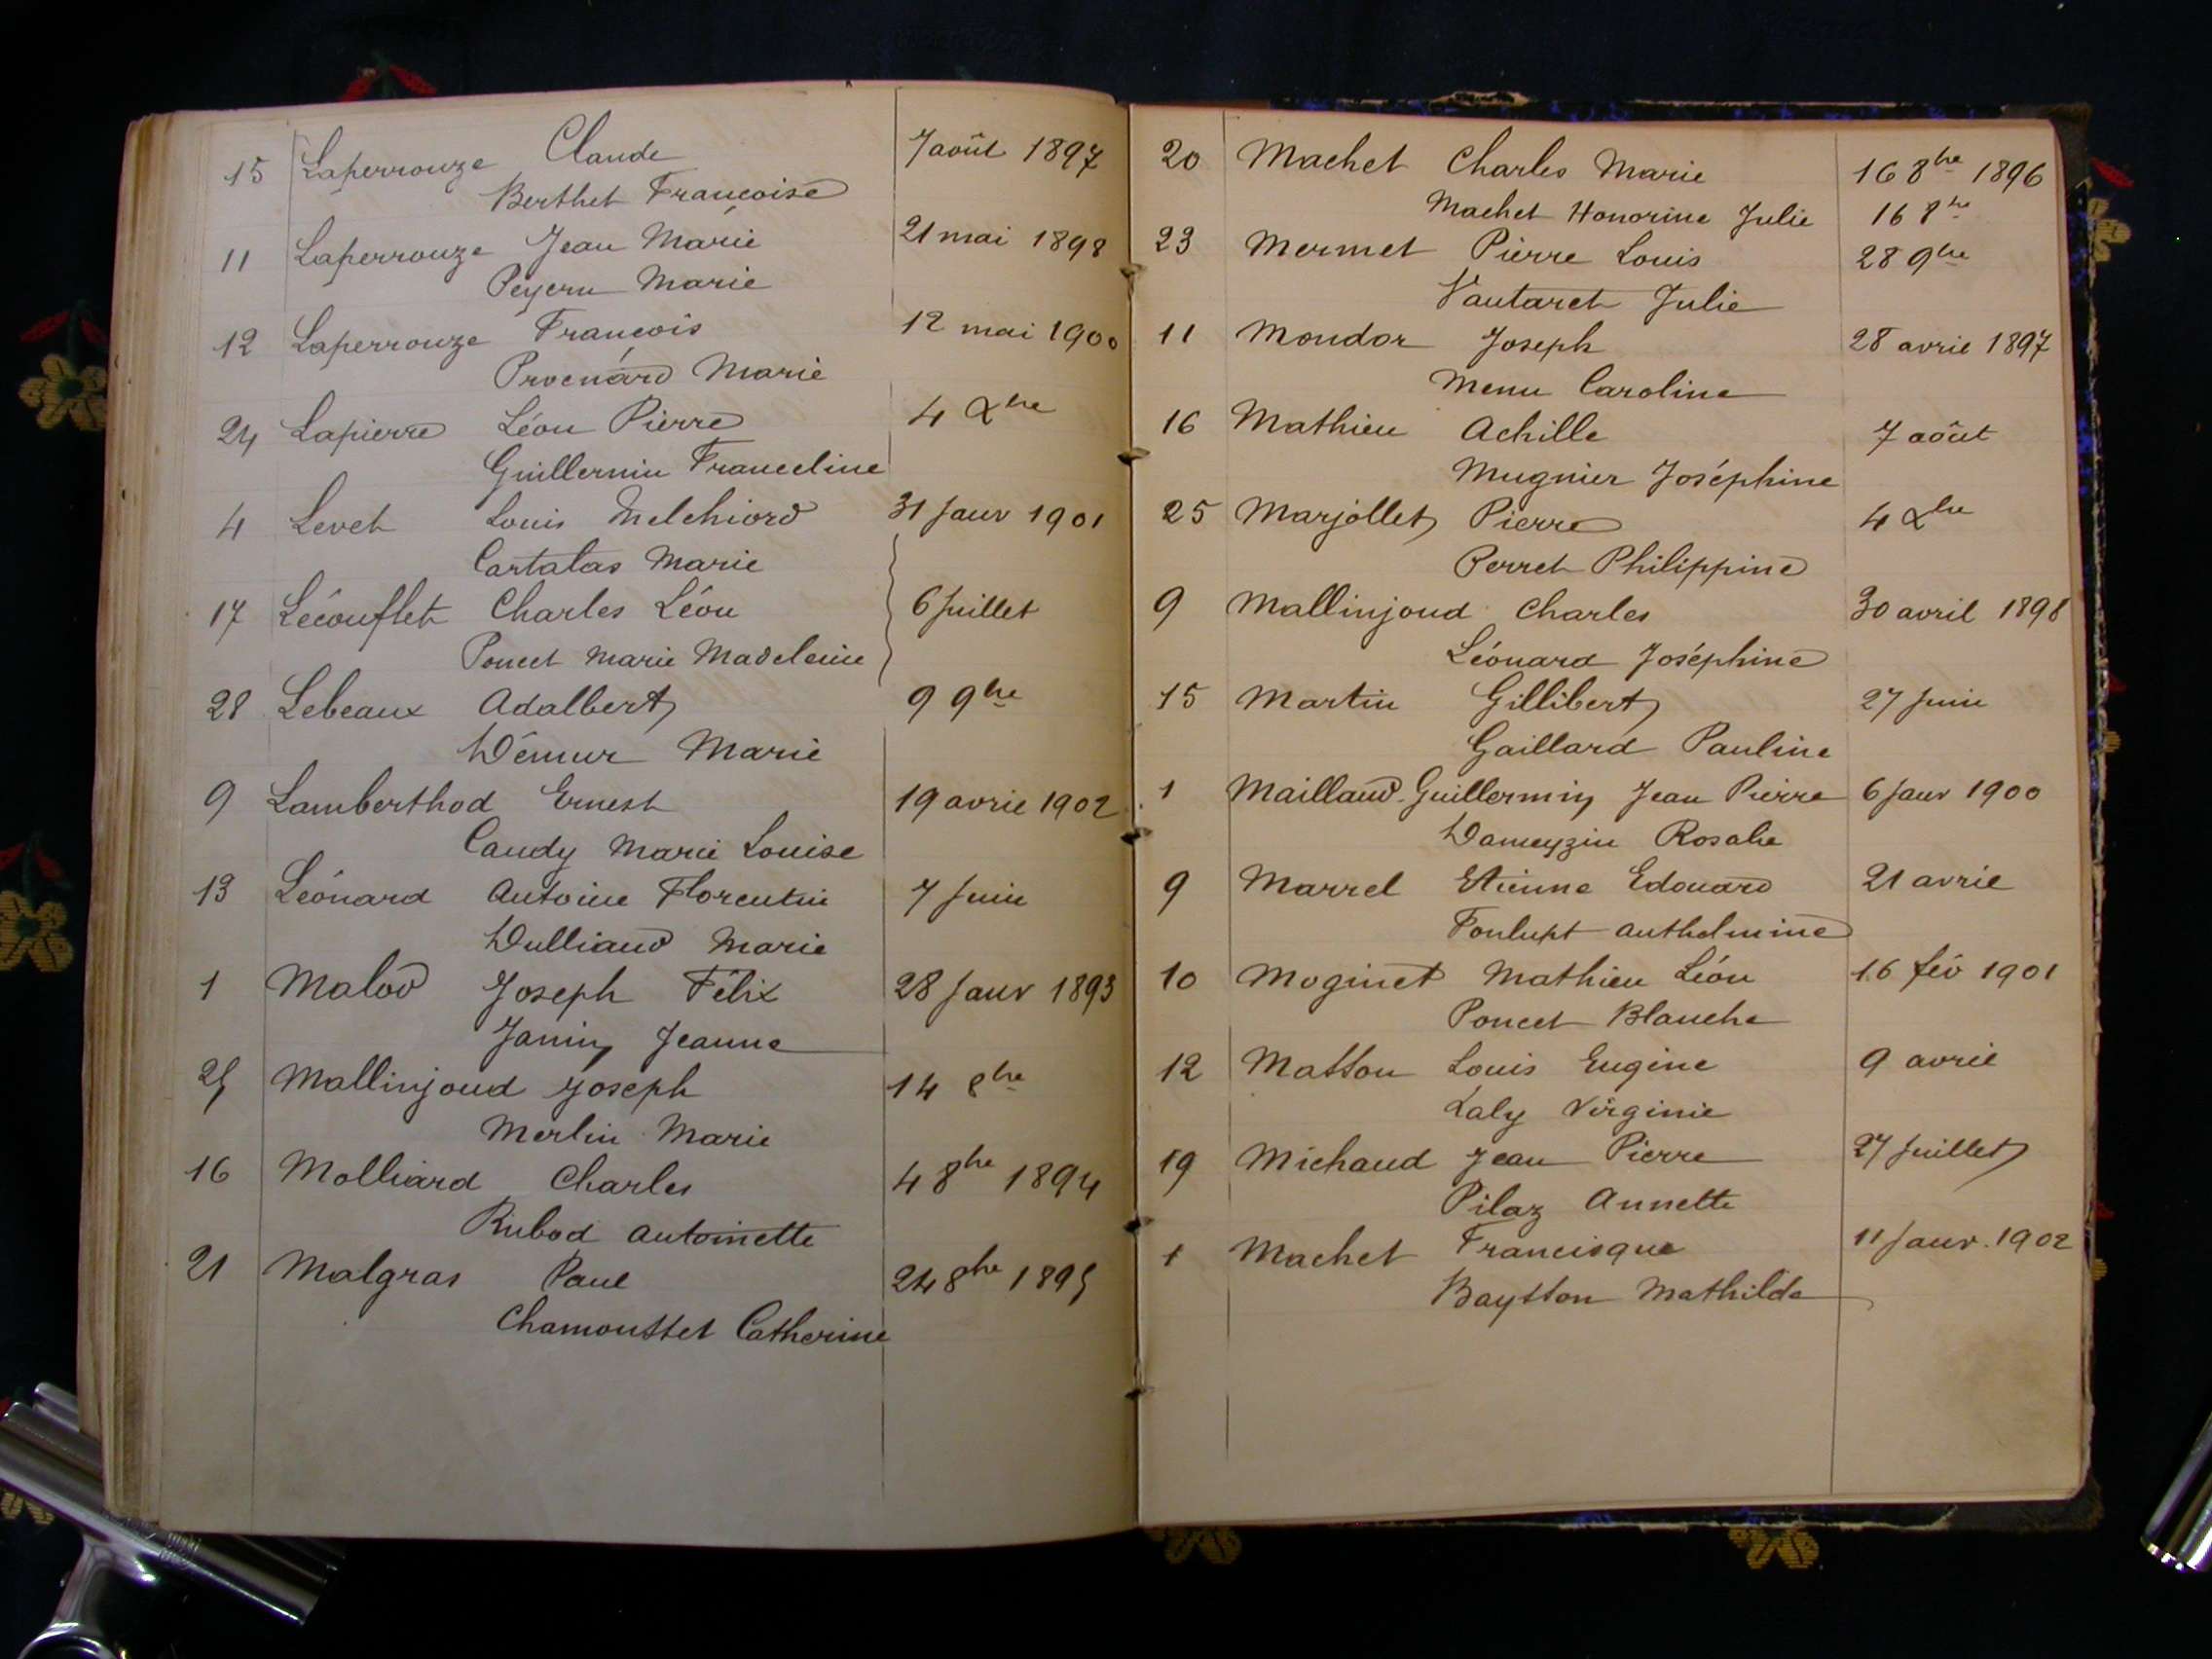 15 Laperrouze Claude 7 août 1897
Berthet Françoise
11 Laperrouze Jean Marie 21 mai 1898
Peyern Marie
12 Laperrouze François 12 mai 1900
Provenard Marie
24 Lapierre Léon Pierre 4 Xbre
Guillermin Franceline
4 Levet Louis Melchiord 31 Janv 1901
Cartalas Marie
17 Lécouflet Charles Léon 6 Juillet
Poncet Marie Madeleine
28 Lebeaux Adalbert 9 9bre
Démur Marie
9 Lamberthod Ernest 19 avril 1902
Caudy Marie Louise
13 Léonard Antoine Florentin 7 Juin
Dulliand Marie
1 Malod Joseph Félix 28 Janv 1893
Janin Jeanne
25 Mallinjoud Joseph 14 8bre
Merlin Marie
16 Molliard Charles 4 8bre 1894
Rubod Antoinette
21 Malgras Paul 24 8bre 1895
Chamousset Catherine
20 Machet Charles Marie 16 8bre 1896
Machet Honorine Julie 16 8bre
23 Mermet Pierre Louis 28 9bre
Vautaret Julie
11 Mondor Joseph 28 avril 1897
Menu Caroline
16 Mathieu Achille 7 août
Mugnier Joséphine
25 Marjollet Pierre 4 Xbre
Perret Philippine
9 Mallinjoud Charles 30 avril 1898
Léonard Joséphine
15 Martin Gillibert 27 Juin
Gaillard Pauline
1 Maillaud-Guillermin Jean Pierre 6 Janv 1900
Dameyzin Rosalie
9 Marrel Etienne Edouard 21 avril
Fonlupt Anthelmine
10 Moginet Mathieu Léon 16 fév 1901
Poncet Blanche
12 Masson Louis Eugène 9 avril
Laly Virginie
19 Michaud Jean Pierre 27 Juillet
Pilaz Annette
1 Machet Francisque 11 Janv. 1902
Baysson Mathilde